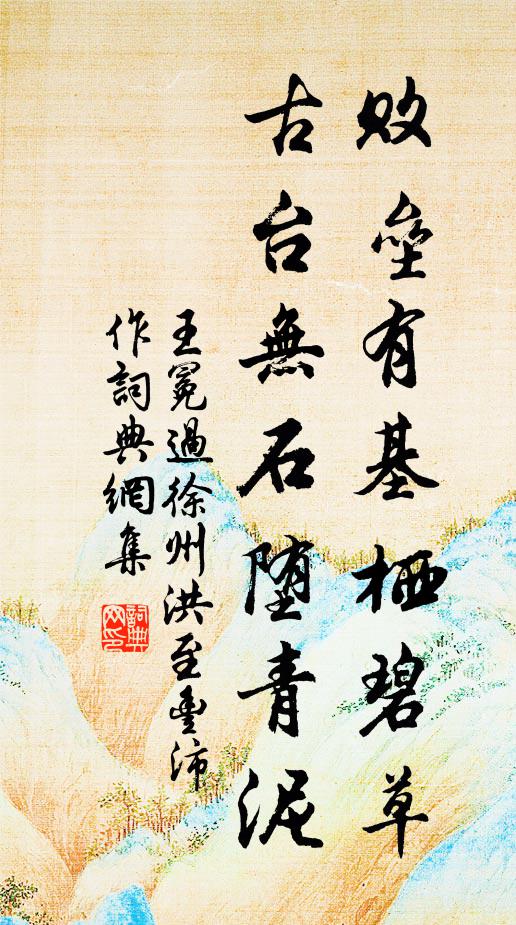 败垒有基栖碧草
古台無石堕青泥
王冕過徐州洪至豐沛
作詞典網集
詞典